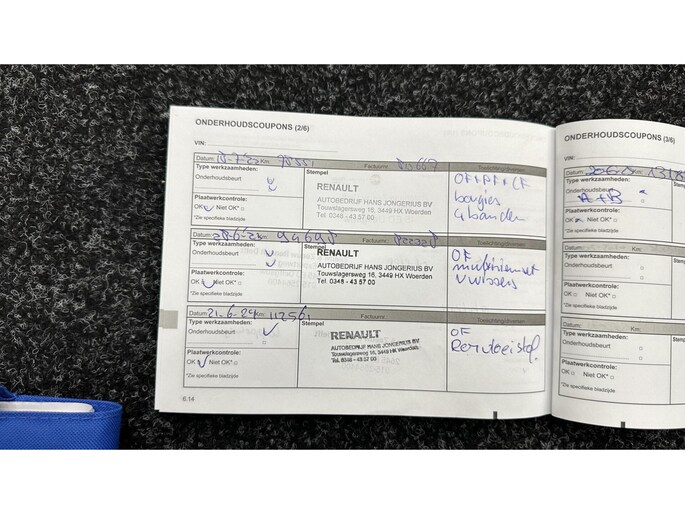 ONDERHOUDSCOUPONS (2/6)
VIN:
Datum: Km: Factuurnr:
Type werkzaamheden:
Onderhoudsbeurt
Plaatwerkcontrole:
OK Niet OK*
*Zie specifieke bladzijde
Stempel
RENAULT
AUTOBEDRIJF HANS JONGERIUS BV
Touwslagersweg 16, 3449 HX Woerden
Tel. 0348 - 43 57 00
OF+PF+CF
bougies
4 banden
Datum: Km: 94698
Type werkzaamheden:
Onderhoudsbeurt
Plaatwerkcontrole:
OK Niet OK*
*Zie specifieke bladzijde
Stempel
RENAULT
AUTOBEDRIJF HANS JONGERIUS BV
Touwslagersweg 16, 3449 HX Woerden
Tel. 0348 - 43 57 00
OF
Datum: 21-6-24 Km: Factuurnr:
Type werkzaamheden:
Onderhoudsbeurt
Plaatwerkcontrole:
OK Niet OK*
*Zie specifieke bladzijde
Stempel
RENAULT
AUTOBEDRIJF HANS JONGERIUS BV
Touwslagersweg 16, 3449 HX Woerden
Tel. 0348 - 43 57 00
OF
6.14
ONDERHOUDSCOUPONS (3/6)
VIN:
Datum: Km:
Type werkzaamheden:
Onderhoudsbeurt
A+B
Plaatwerkcontrole:
OK Niet OK*
*Zie specifieke bladzijde
Datum: Km:
Type werkzaamheden:
Onderhoudsbeurt
Plaatwerkcontrole:
OK Niet OK*
*Zie specifieke bladzijde
Datum: Km:
Type werkzaamheden:
Onderhoudsbeurt
Plaatwerkcontrole:
OK Niet OK*
*Zie specifieke bladzijde